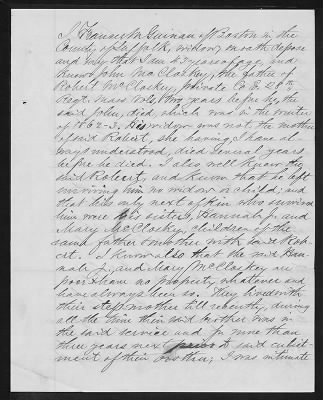 I, Honora McGuinan of Boston in the
County of Suffolk, widow, on oath depose
and say that I am 43 years of age, and
knew John McCloskey, the father of
Robert McCloskey, private Co E. 28th
Regt. Mass Vols, two years before he, the
said John, died, which was in the winter
of 1862-3. His widow was not the mother
of said Robert, she having, I have al-
ways understood, died several years
before he died. I also well knew the
said Robert, and know that he left
surviving him no widow or child, and
that his only next of kin who survived
him were his sisters, Hannah J. and
Mary McCloskey, children of the
same father & mother with said Rob-
ert. I know also that the said Han-
nah J. and Mary McCloskey are
poor & have no property whatever and
have always been so. They lived with
their step mother till recently, during
all the time their said brother was in
the said service and for more than
three years next prior to said enlist-
ment of their brother; I was intimate